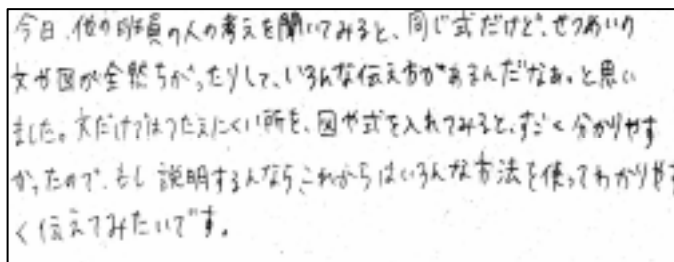 今日、他の班員の人の考えを聞いてみると、同じ式だけど、せつめいの
文や図が全然ちがったりして、いろんな伝え方があるんだなあ。と思い
ました。文だけではつたえにくい所を、図や式を入れてみると、すごく分かりやす
かったので、もし説明するんなら、これからはいろんな方法を使ってわかりやす
く伝えてみたいです。